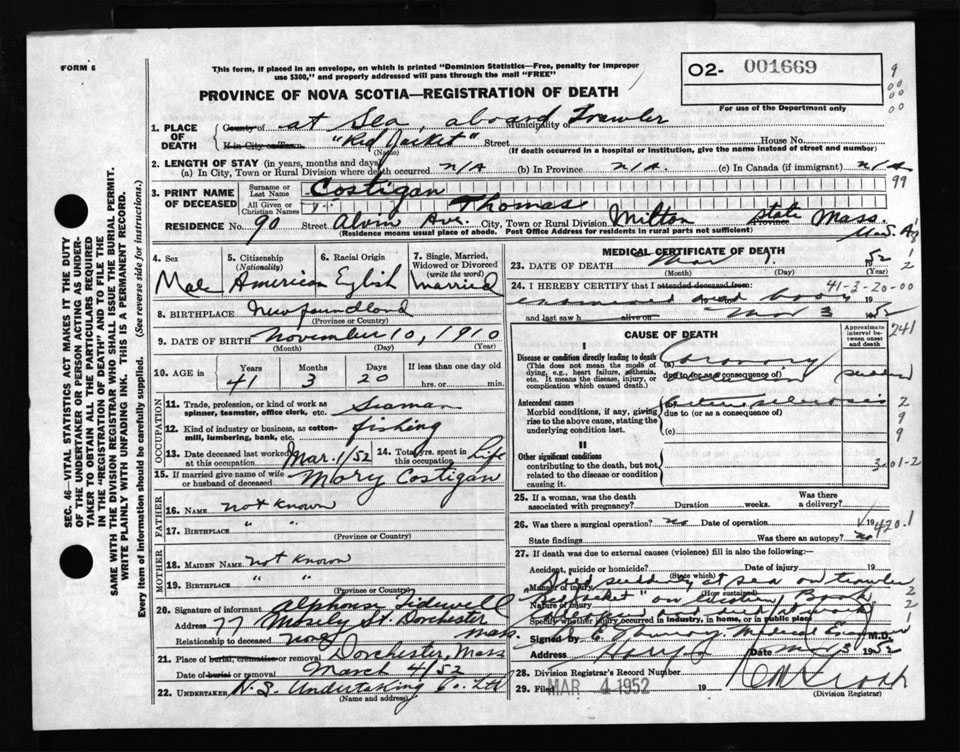 FORM 6
This form, if placed in an envelope, on which is printed "Dominion Statistics—Free, penalty for improper
use $300," and properly addressed will pass through the mail "FREE"
O2- 001669
For use of the Department only
PROVINCE OF NOVA SCOTIA—REGISTRATION OF DEATH
SEC. 46—VITAL STATISTICS ACT MAKES IT THE DUTY
OF THE UNDERTAKER OR PERSON ACTING AS UNDER-
TAKER TO OBTAIN ALL THE PARTICULARS REQUIRED
IN THE "REGISTRATION OF DEATH" AND TO FILE THE
SAME WITH THE DIVISION REGISTRAR WHO SHALL ISSUE THE BURIAL PERMIT.
WRITE PLAINLY WITH UNFADING INK. THIS IS A PERMANENT RECORD.
Every item of information should be carefully supplied. (See reverse side for instructions.)
1. PLACE OF DEATH
County of at Sea, aboard Municipality of Trawler
If in City or Town "Red Jacket" Street House No.
(Name) (If death occurred in a hospital or institution, give the name instead of street and number)
2. LENGTH OF STAY (in years, months and days)
(a) In City, Town or Rural Division where death occurred N/A (b) In Province N/A. (c) In Canada (if immigrant) N/A
99
3. PRINT NAME OF DECEASED
Surname or Last Name Costigan
All Given or Christian Names Thomas
RESIDENCE No. 90 Street Alvin Ave. City, Town or Rural Division Milton State Mass.
(Residence means usual place of abode. Post Office Address for residents in rural parts not sufficient)
4. Sex
Male
5. Citizenship (Nationality)
American
6. Racial Origin
Eglish
7. Single, Married, Widowed or Divorced (write the word)
married
8. BIRTHPLACE Newfoundland
(Province or Country)
9. DATE OF BIRTH November 10, 1910
(Month) (Day) (Year)
10. AGE in Years Months Days If less than one day old
41 3 20 hrs. or min.
OCCUPATION
11. Trade, profession, or kind of work as
spinner, teamster, office clerk, etc. Seaman
12. Kind of industry or business, as cotton-
mill, lumbering, bank, etc. fishing
13. Date deceased last worked at this occupation Mar. 1/52
14. Total yrs. spent in this occupation Life
15. If married give name of wife or husband of deceased Mary Costigan
FATHER
16. Name not known
17. BIRTHPLACE " "
(Province or Country)
MOTHER
18. MAIDEN NAME not known
19. BIRTHPLACE " "
(Province or Country)
20. Signature of informant Alphonse Tidewell
Address 77 Mosely St. Dorchester
Mass.
Relationship to deceased None
21. Place of burial, cremation or removal Dorchester, Mass
Date of burial or removal March 4/52
22. UNDERTAKER N.S. Undertaking Co. Ltd
(Name and address)
MEDICAL CERTIFICATE OF DEATH
23. DATE OF DEATH Mar 1. 1952
(Month) (Day)
41-3-20-00
24. I HEREBY CERTIFY that I attended deceased from:
examined dead body 19
and last saw h alive on Mar 3 1952
CAUSE OF DEATH
Approximate interval between onset and death
241
I
Disease or condition directly leading to death
(This does not mean the mode of dying, e.g., heart failure, asthenia, etc. It means the disease, injury, or complication which caused death.)
(a) Coronary
due to (or as a consequence of) sudden
Antecedent causes
Morbid conditions, if any, giving rise to the above cause, stating the underlying condition last.
due to (or as a consequence of)
(c)
II
Other significant conditions
contributing to the death, but not related to the disease or condition causing it.
25. If a woman, was the death associated with pregnancy? Duration weeks. Was there a delivery?
26. Was there a surgical operation? no Date of operation 19
420.1
State findings Was there an autopsy? no
27. If death was due to external causes (violence) fill in also the following:—
Accident, suicide or homicide? Date of injury 19
(State which)
Manner of injury Died suddenly at sea on trawler
(How sustained)
Nature of injury "Red Jacket" on Western Bank
Specify whether injury occurred in industry, in home, or in public place
Signed by Medical Examiner M.D.
Address Date Mar 3 1952
28. Division Registrar's Record Number
29. Filed MAR 4 1952 19
(Division Registrar)